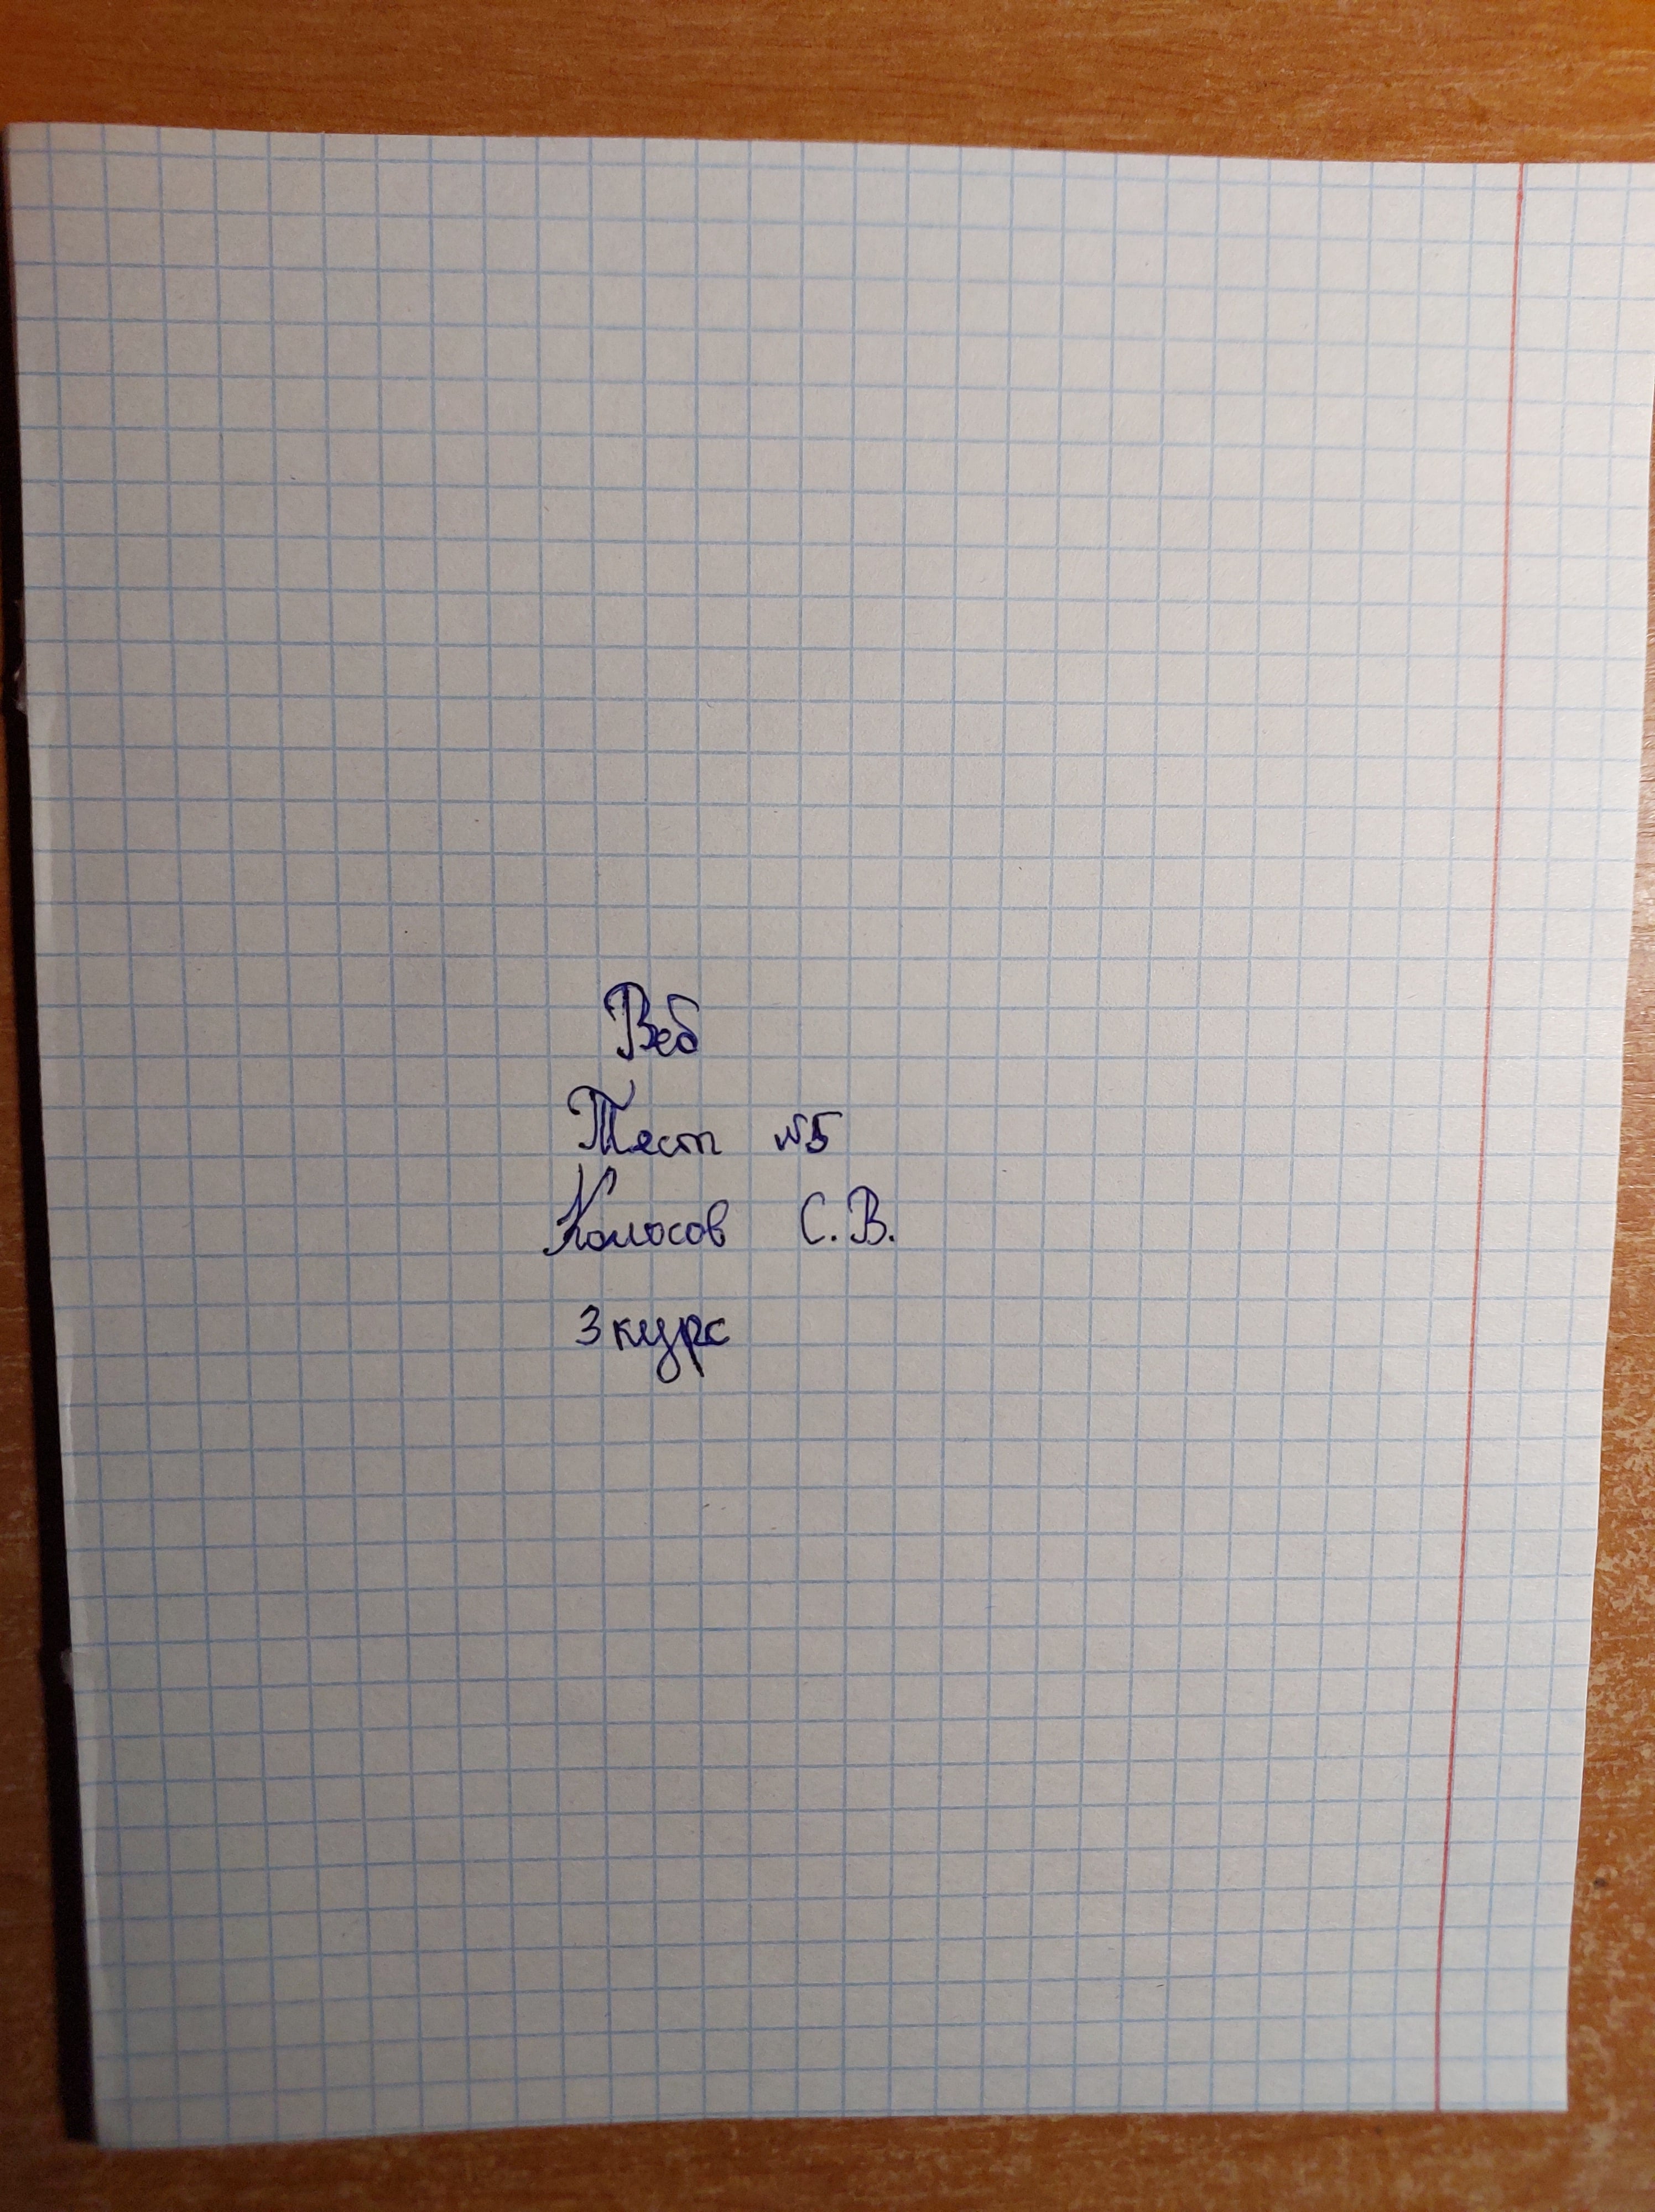 Веб
Тест №5
Колосов С.В.
3 курс